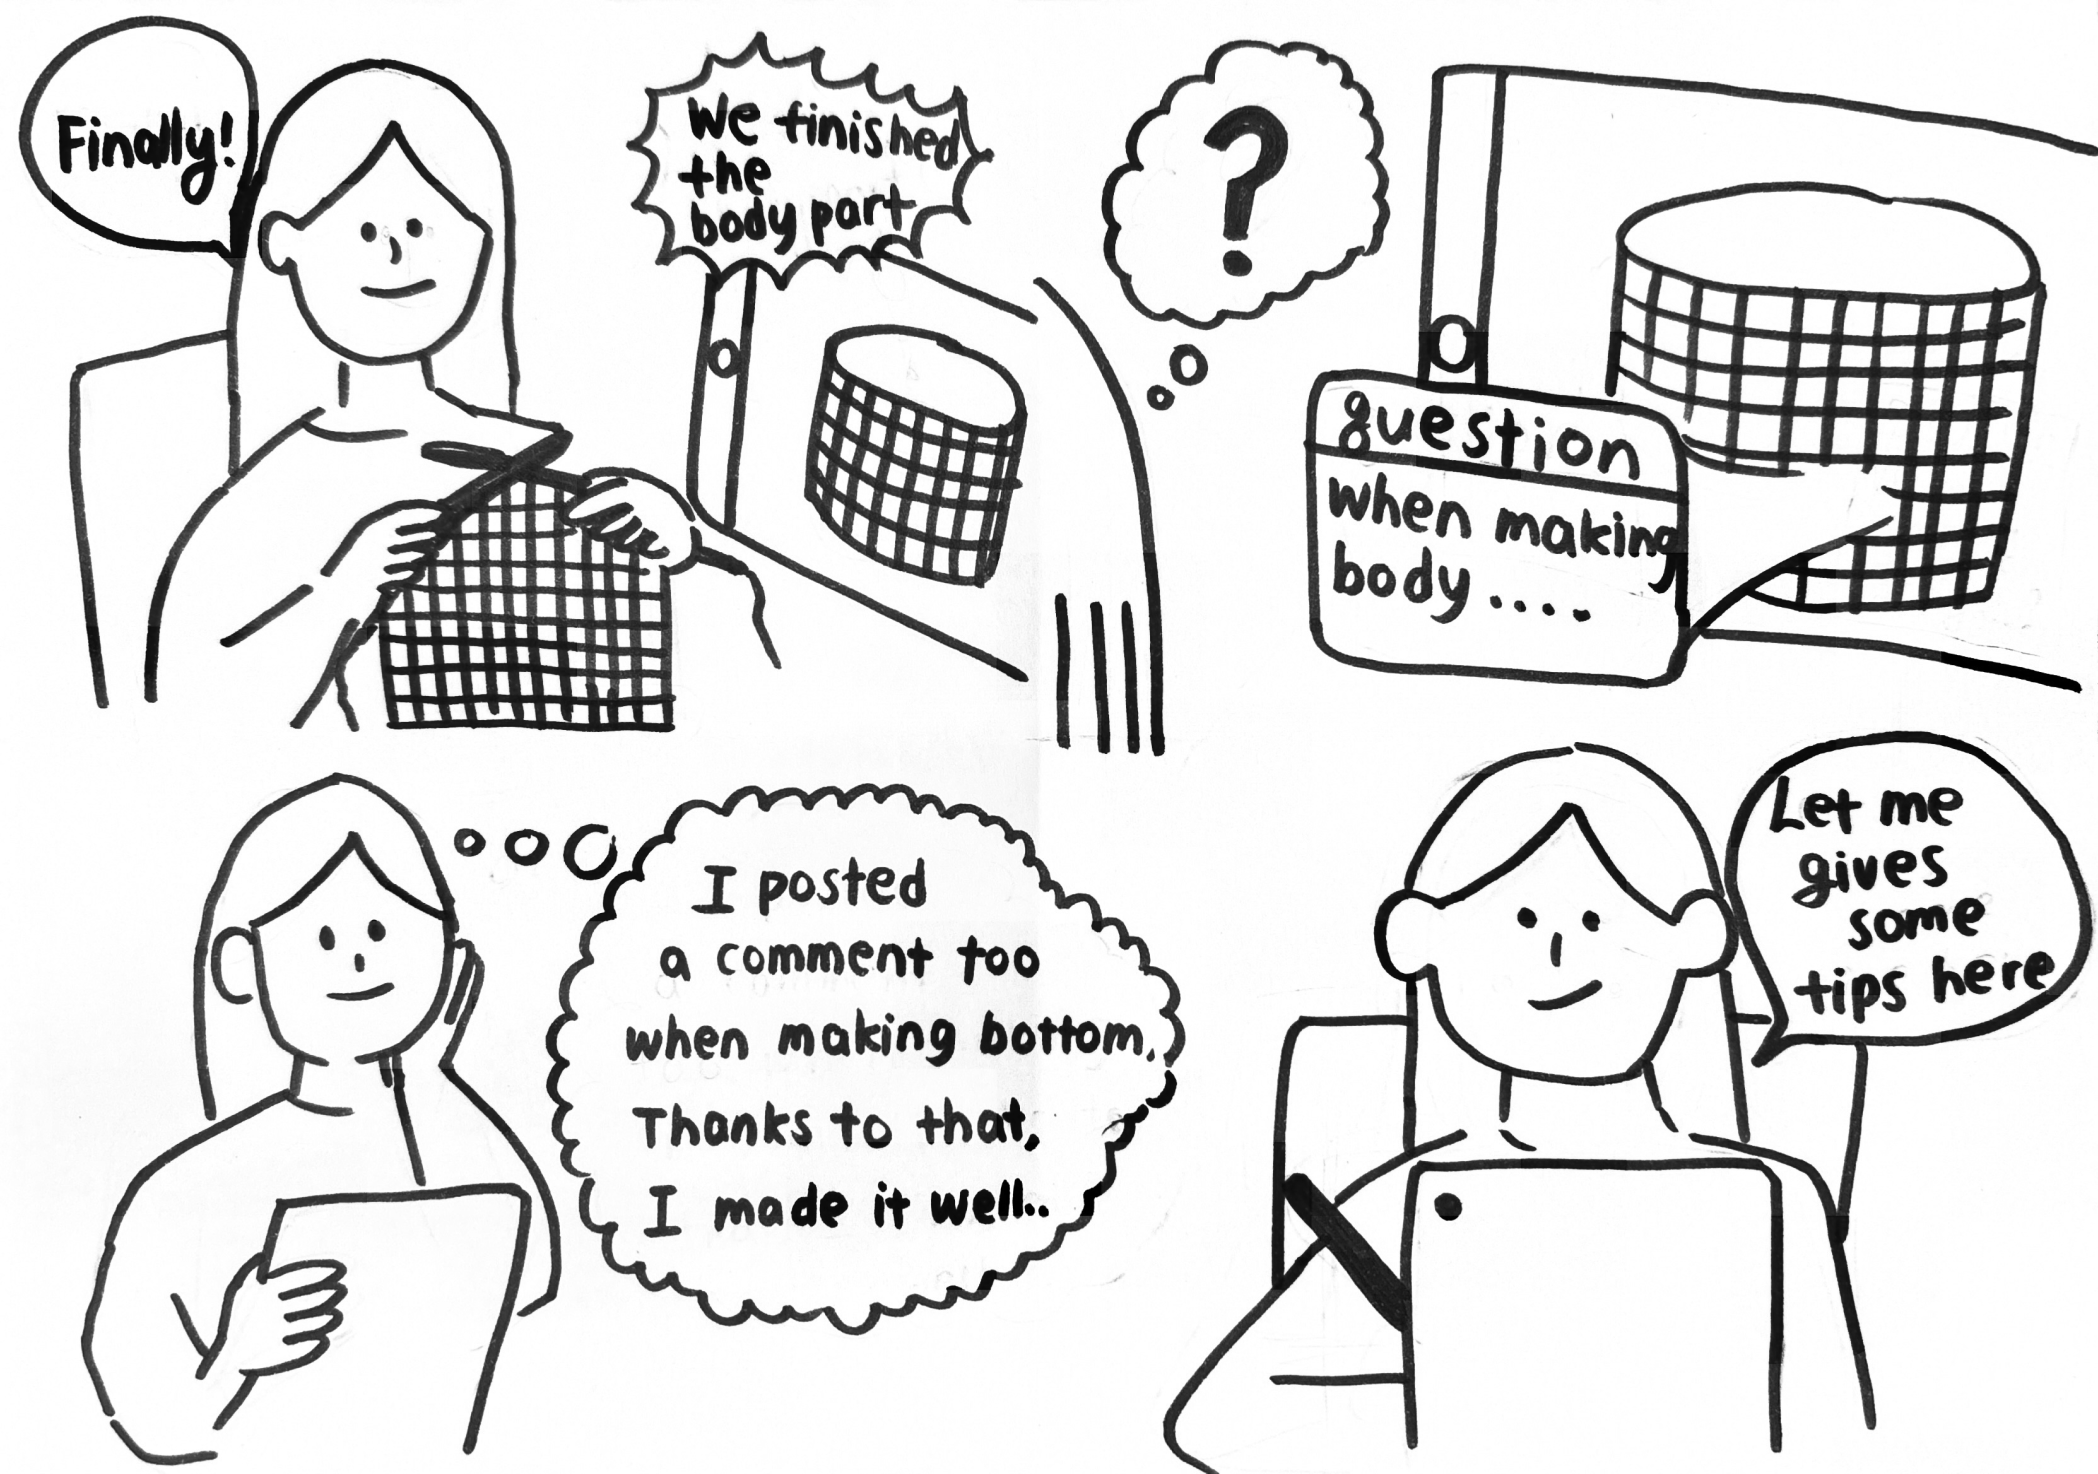 Finally!
We finished
the
body part
?
question
when making
body....
I posted
a comment too
when making bottom.
Thanks to that,
I made it well..
Let me
gives
some
tips here